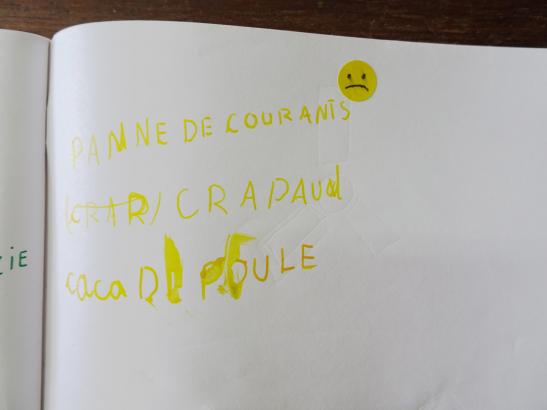 PANNE DE COURANTS
(CRAR) CRAPAUd
caca DE POULE
iE